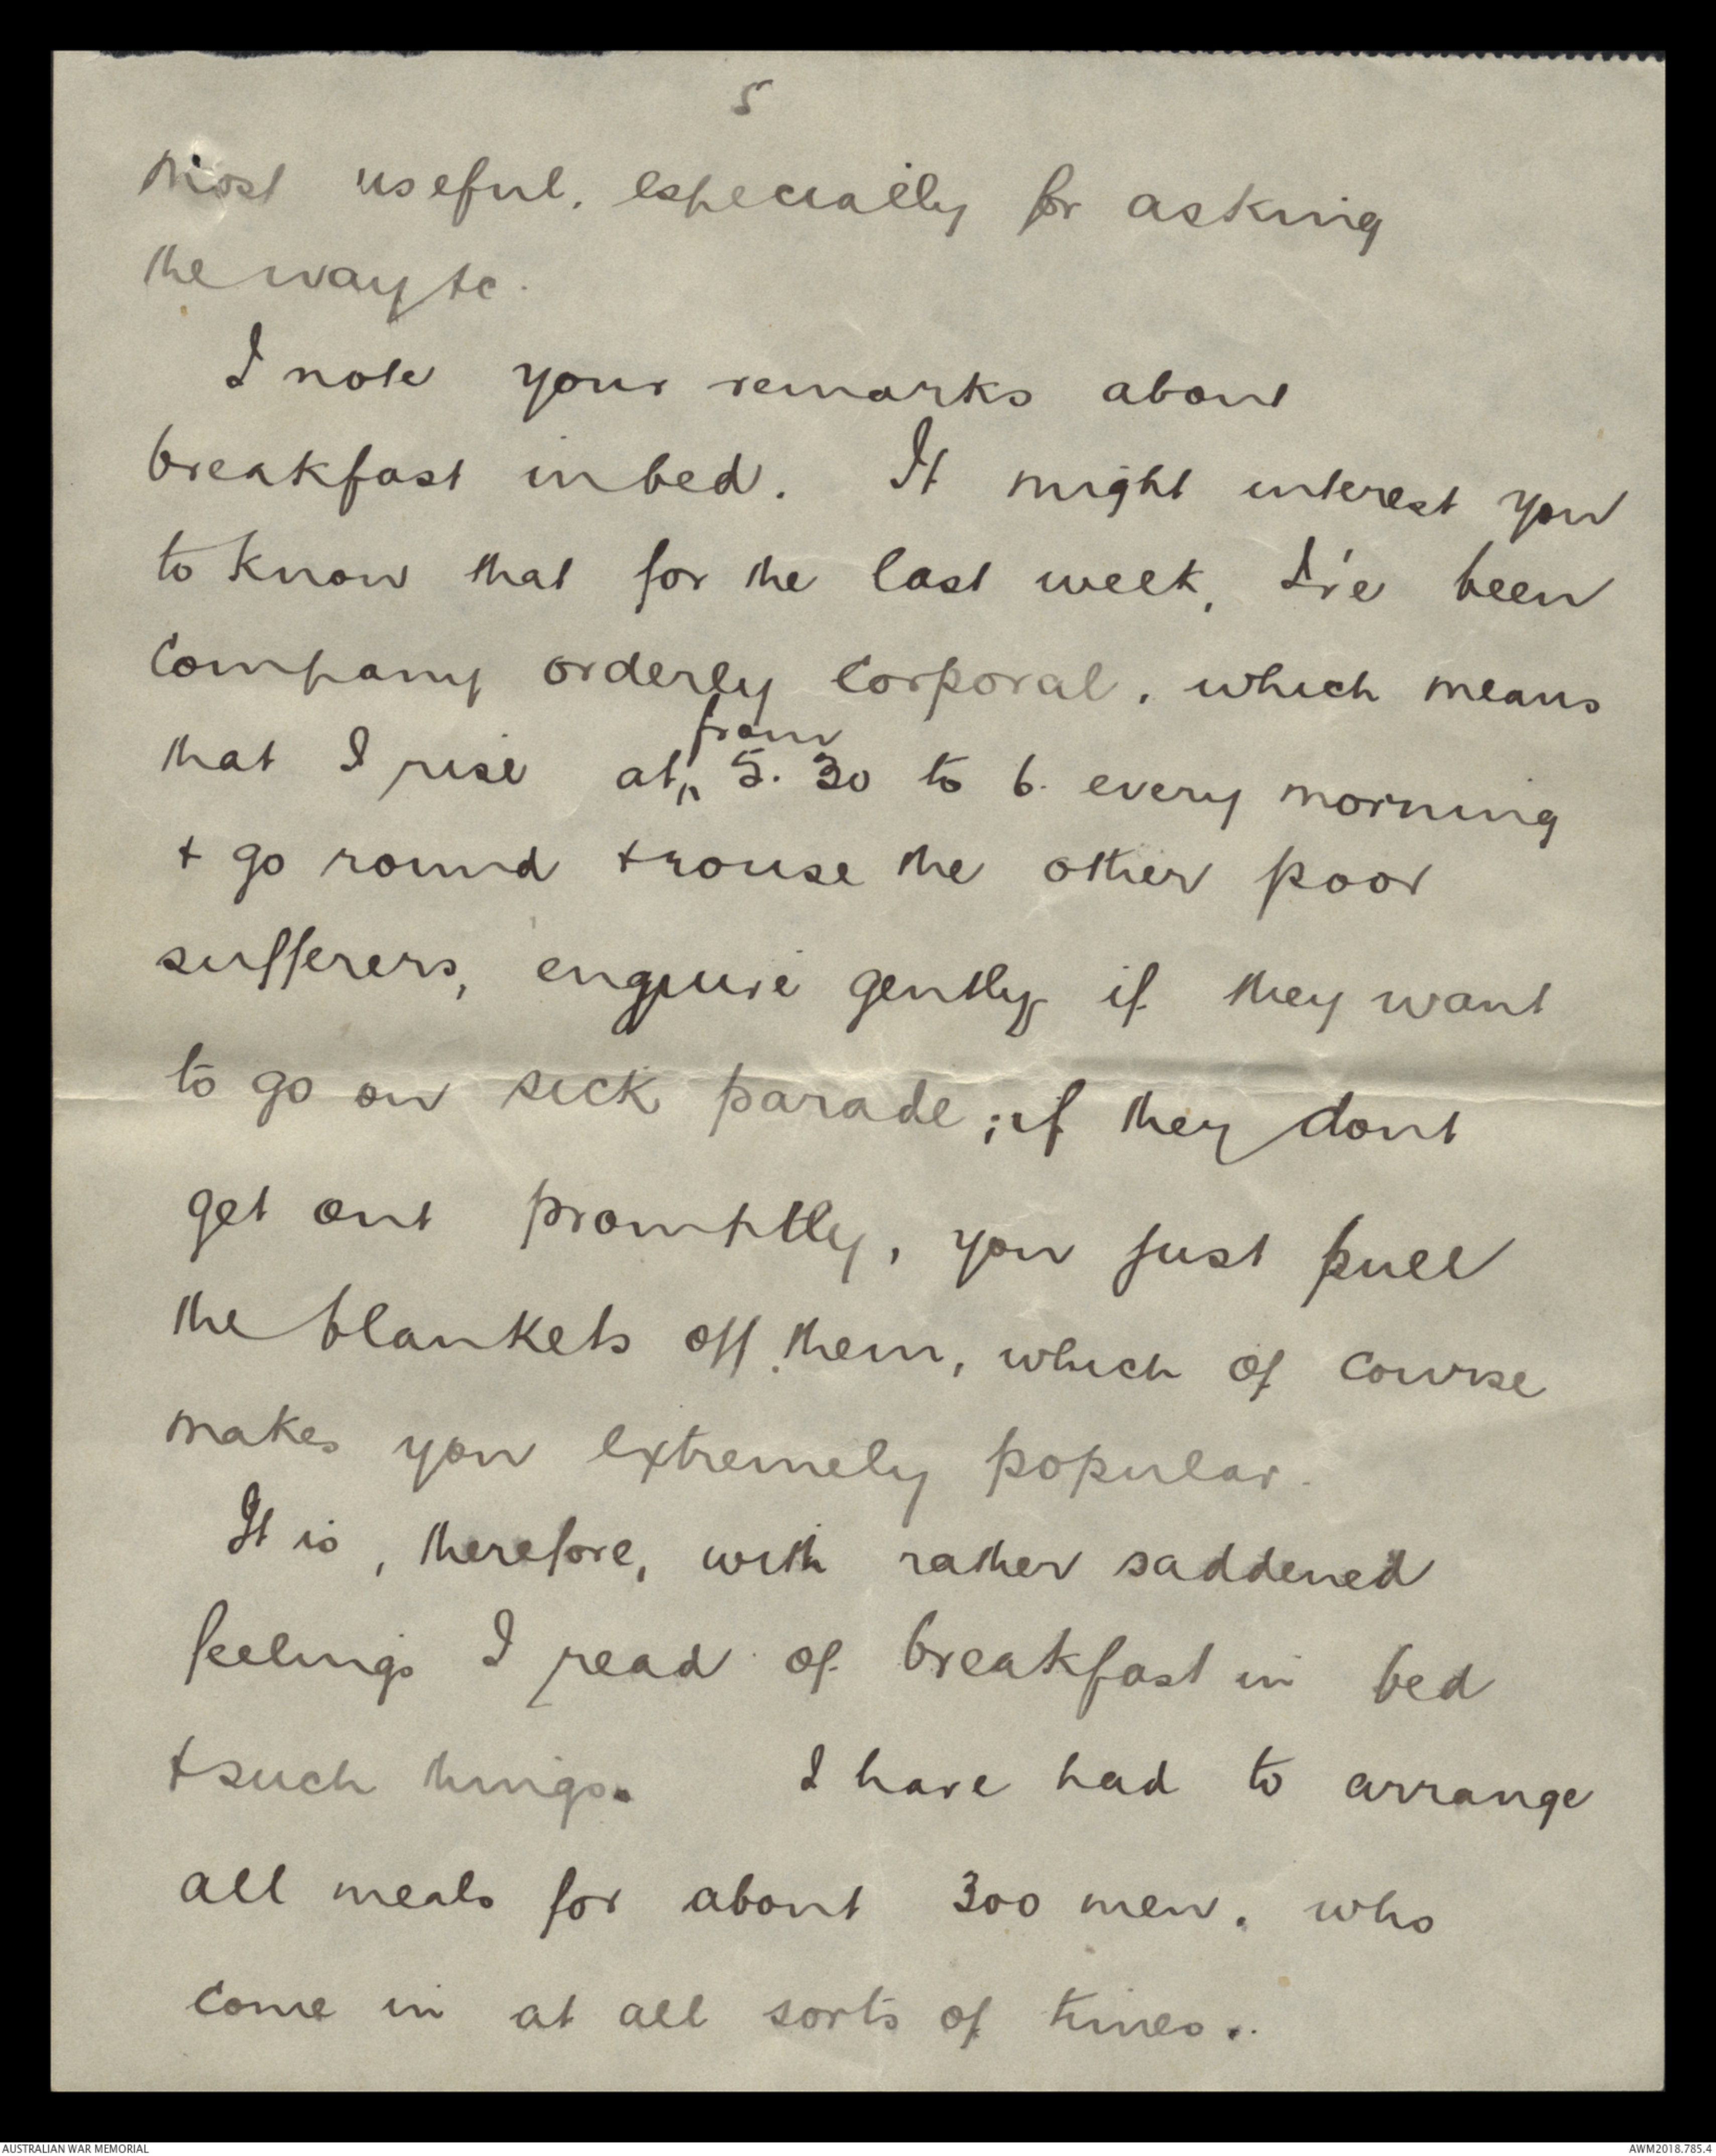 5
most useful, especially for asking
the way &c.
I note your remarks about
breakfast in bed. It might interest you
to know that for the last week, I've been
company orderly corporal, which means
from
that I rise at 5.30 to 6. every morning
+ go round + rouse the other poor
sufferers, enquire gently if they want
to go on sick parade; if they dont
get out promptly, you just pull
the blankets off them, which of course
makes you extremely popular.
It is, therefore, with rather saddened
feelings I read of breakfast in bed
+ such things. I have had to arrange
all meals for about 300 men, who
come in at all sorts of times.
AUSTRALIAN WAR MEMORIAL AWM2018.785.4